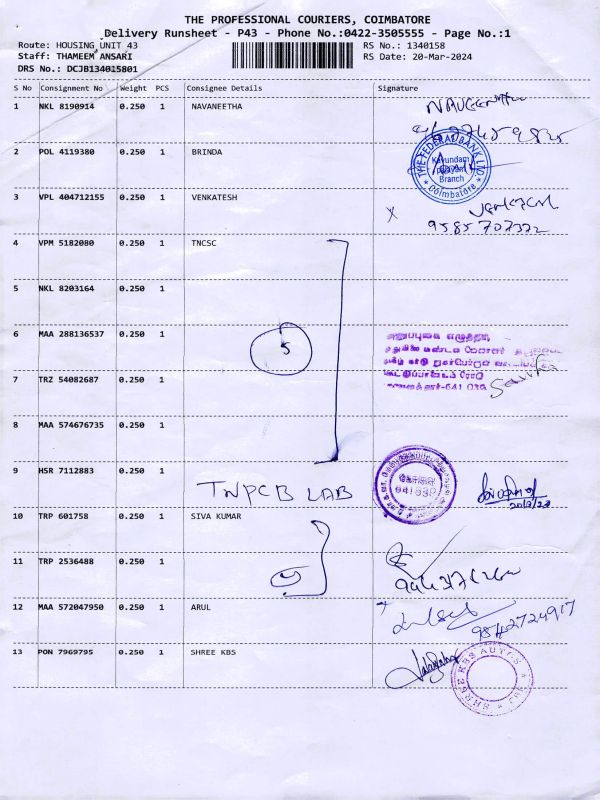 THE PROFESSIONAL COURIERS, COIMBATORE
Delivery Runsheet - P43 - Phone No.:0422-3505555 - Page No.:1
Route: HOUSING UNIT 43
RS No.: 1340158
Staff: THAMEEM ANSARI
RS Date: 20-Mar-2024
DRS No.: DCJB134015801
S No Consignment No Weight PCS Consignee Details Signature
1 NKL 8190914 0.250 1 NAVANEETHA
2 POL 4119380 0.250 1 BRINDA
THE FEDERAL BANK LTD
Branch
Coimbatore
3 VPL 404712155 0.250 1 VENKATESH
9585707322
4 VPM 5182080 0.250 1 TNCSC
5 NKL 8203164 0.250 1
6 MAA 288136537 0.250 1
5
7 TRZ 54082687 0.250 1
8 MAA 574676735 0.250 1
9 HSR 7112883 0.250 1
TNPCB LAB
20/3/24
10 TRP 601758 0.250 1 SIVA KUMAR
11 TRP 2536488 0.250 1
12 MAA 572047950 0.250 1 ARUL
9842724917
13 PON 7969795 0.250 1 SHREE KBS
SHREE KBS AUTOS